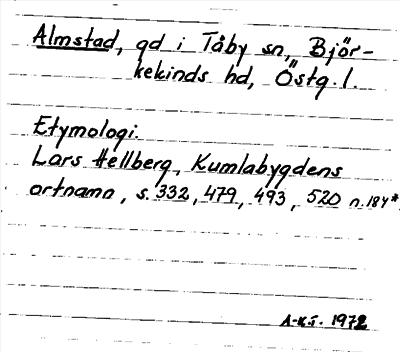 Almstad, gd i Tåby sn, Björ-
kekinds hd, Östg. l.
Etymologi.
Lars Hellberg, Kumlabygdens
ortnamn, s. 332, 479, 493, 520 n. 184*
A-K.T. 1972